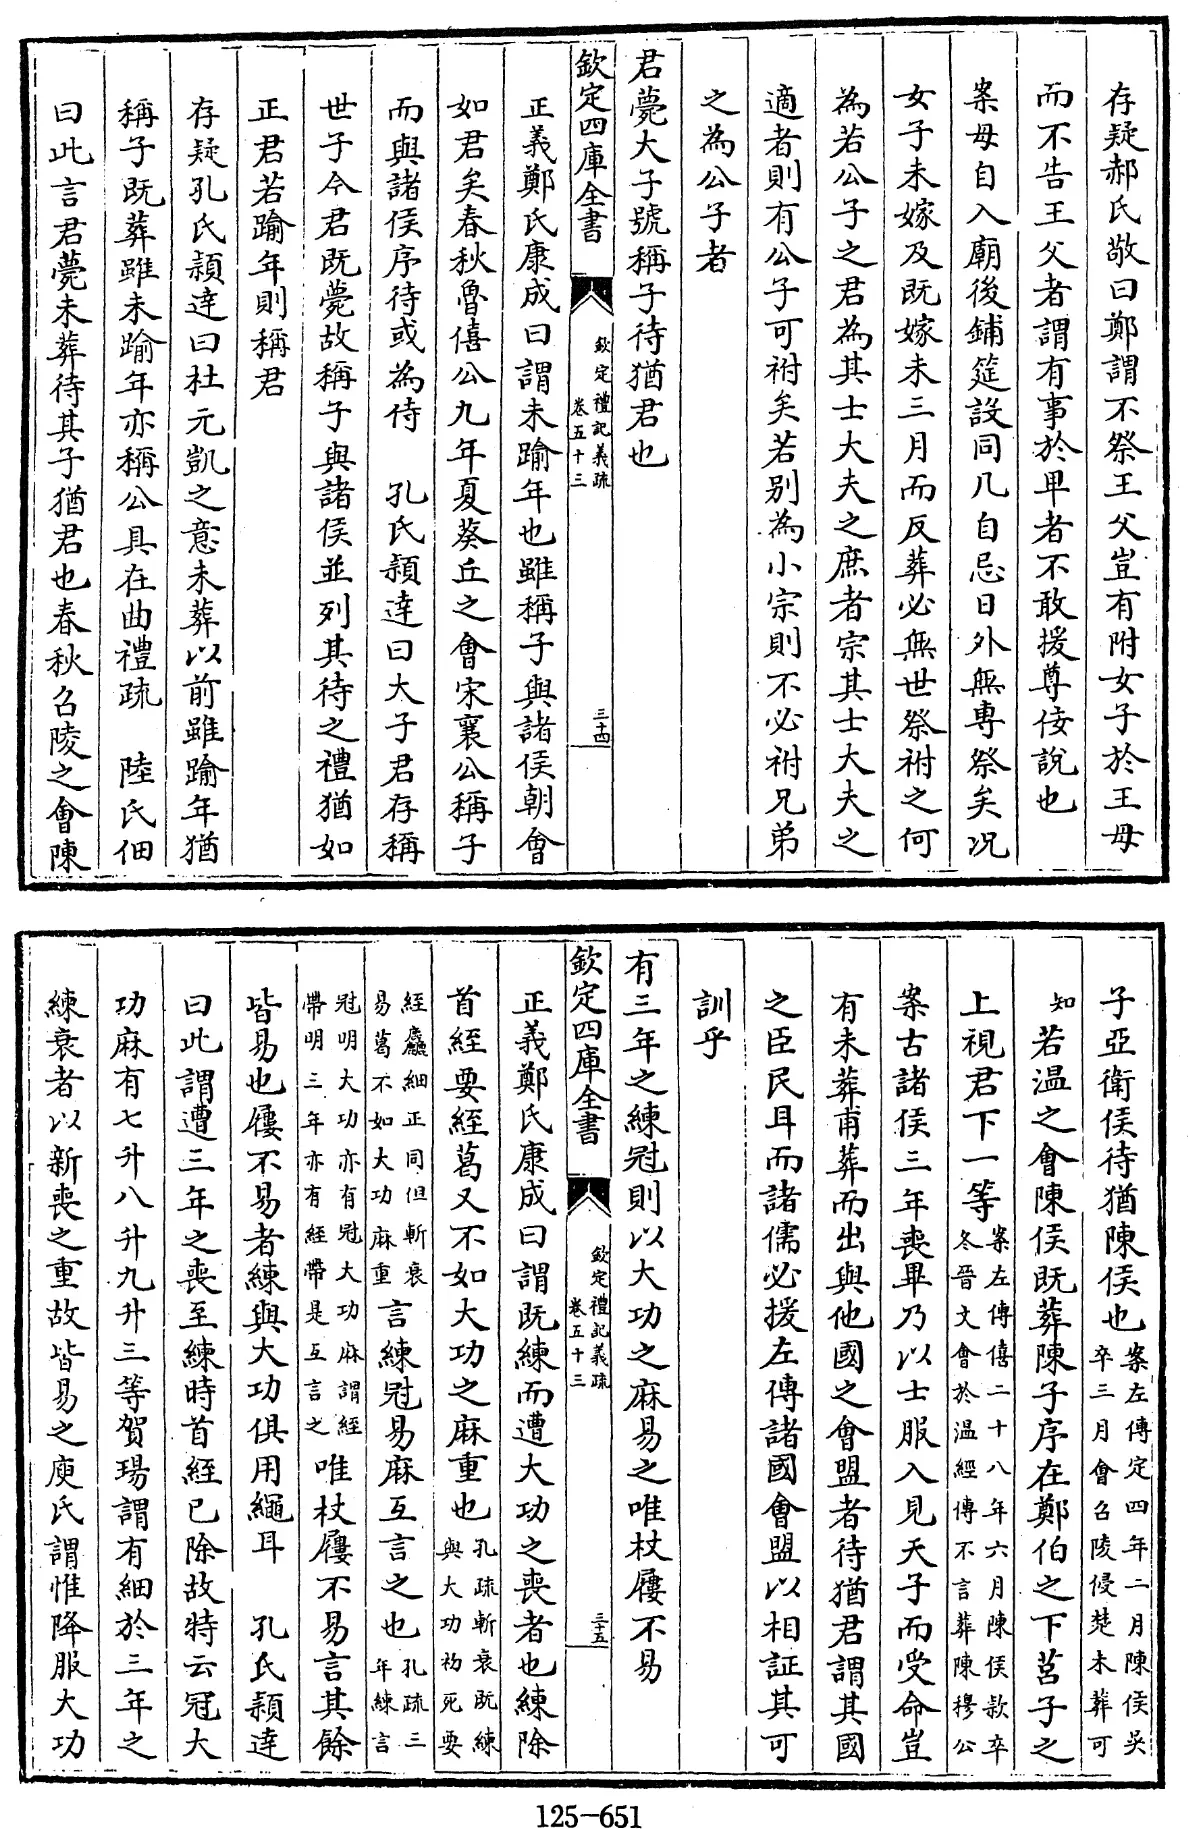 存疑郝氏敬曰鄭謂不祭王父豈有附女子於王母
而不告王父者謂有事於卑者不敢援尊佞說也
案母自入廟後鋪筵設同几自忌日外無専祭矣况
女子未嫁及既嫁未三月而反葬必無世祭祔之何
為若公子之君為其士大夫之庶者宗其士大夫之
適者則有公子可祔矣若别為小宗則不必祔兄弟
之為公子者
君薨大子號稱子待猶君也
欽定四庫全書
欽定禮記義疏
卷五十三
三十四
正義鄭氏康成曰謂未踰年也雖稱子與諸侯朝會
如君矣春秋魯僖公九年夏葵丘之會宋襄公稱子
而與諸侯序待或為侍 孔氏頴達曰大子君存稱
世子今君既薨故稱子與諸侯並列其待之禮猶如
正君若踰年則稱君
存疑孔氏頴達曰杜元凱之意未葬以前雖踰年猶
稱子既葬雖未踰年亦稱公具在曲禮疏 陸氏佃
曰此言君薨未葬待其子猶君也春秋召陵之會陳
子亞衛侯待猶陳侯也案左傳定四年二月陳侯吴
卒三月會召陵侵楚未葬可
知若温之會陳侯既葬陳子序在鄭伯之下莒子之
上視君下一等案左傳僖二十八年六月陳侯款卒
冬晉文會於温經傳不言葬陳穆公
案古諸侯三年喪畢乃以士服入見天子而受命豈
有未葬甫葬而出與他國之會盟者待猶君謂其國
之臣民耳而諸儒必援左傳諸國會盟以相証其可
訓乎
有三年之練冠則以大功之麻易之唯杖屨不易
欽定四庫全書
欽定禮記義疏
卷五十三
三十五
正義鄭氏康成曰謂既練而遭大功之喪者也練除
首絰要絰葛又不如大功之麻重也孔疏斬衰既練
與大功初死要
絰麤細正同但斬衰
易葛不如大功麻重言練冠易麻互言之也孔疏三
年練言
冠明大功亦有冠大功麻謂絰
帶明三年亦有絰帶是互言之唯杖屨不易言其餘
皆易也屨不易者練與大功俱用繩耳 孔氏頴達
曰此謂遭三年之喪至練時首絰已除故特云冠大
功麻有七升八升九升三等賀瑒謂有細於三年之
練衰者以新喪之重故皆易之庾氏謂惟降服大功
125-651